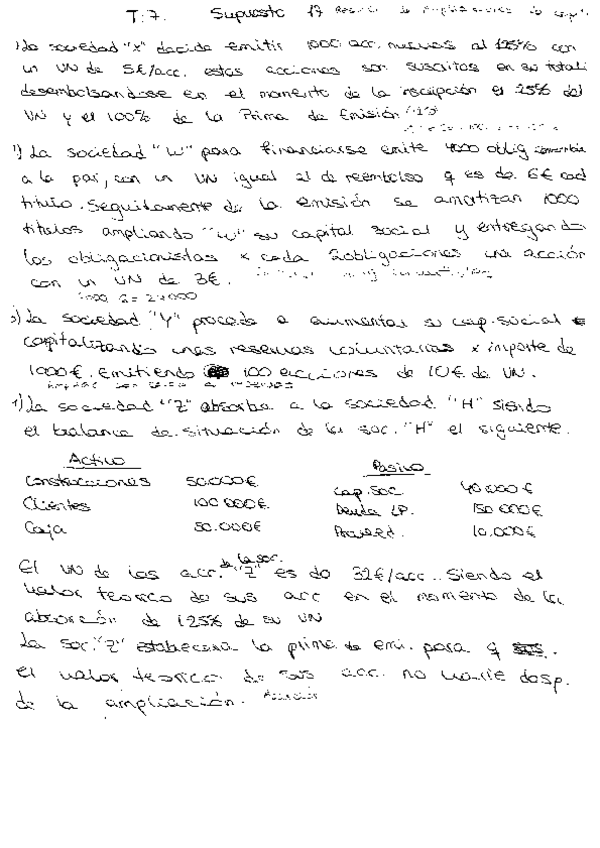 T.7. Supuesto 17
1) La sociedad "X" decide emitir 1000 acc. nuevas al 125% con
un VN de 5€/acc. estas acciones son suscritas en su totali
desembolsandose en el momento de la inscripción el 25% del
VN y el 100% de la Prima de Emisión
1) La sociedad "W" para financiarse emite 4000 oblig
a la par, con un VN igual al de reembolso q es de 6€ cad
título. Seguidamente de la emisión se amortizan 1000
títulos ampliando "W" su capital social y entregando
los obligacionistas x cada 2obligaciones una acción
con un VN de 3€.
3) La sociedad "Y" procede a aumentar su cap. social
capitalizando unas reservas voluntarias x importe de
1000€. Emitiendo 100 acciones de 10€ de VN.
1) La sociedad "Z" absorbe a la sociedad "H" siendo
el balance de situación de la soc. "H" el siguiente.
Activo Pasivo
Construcciones 50.000€ Cap. Soc 40.000€
Clientes 100.000€ Deuda LP. 150.000€
Caja 50.000€ Proveed. 10.000€
El VN de las acc. de la soc. "Z" es de 32€/acc.. Siendo el
valor teorico de sus acc en el momento de la
absorción de 125% de su VN
La soc. "Z" establecera la prima de emi. para q
el valor teorico de sus acc. no varie desp.
de la ampliación.